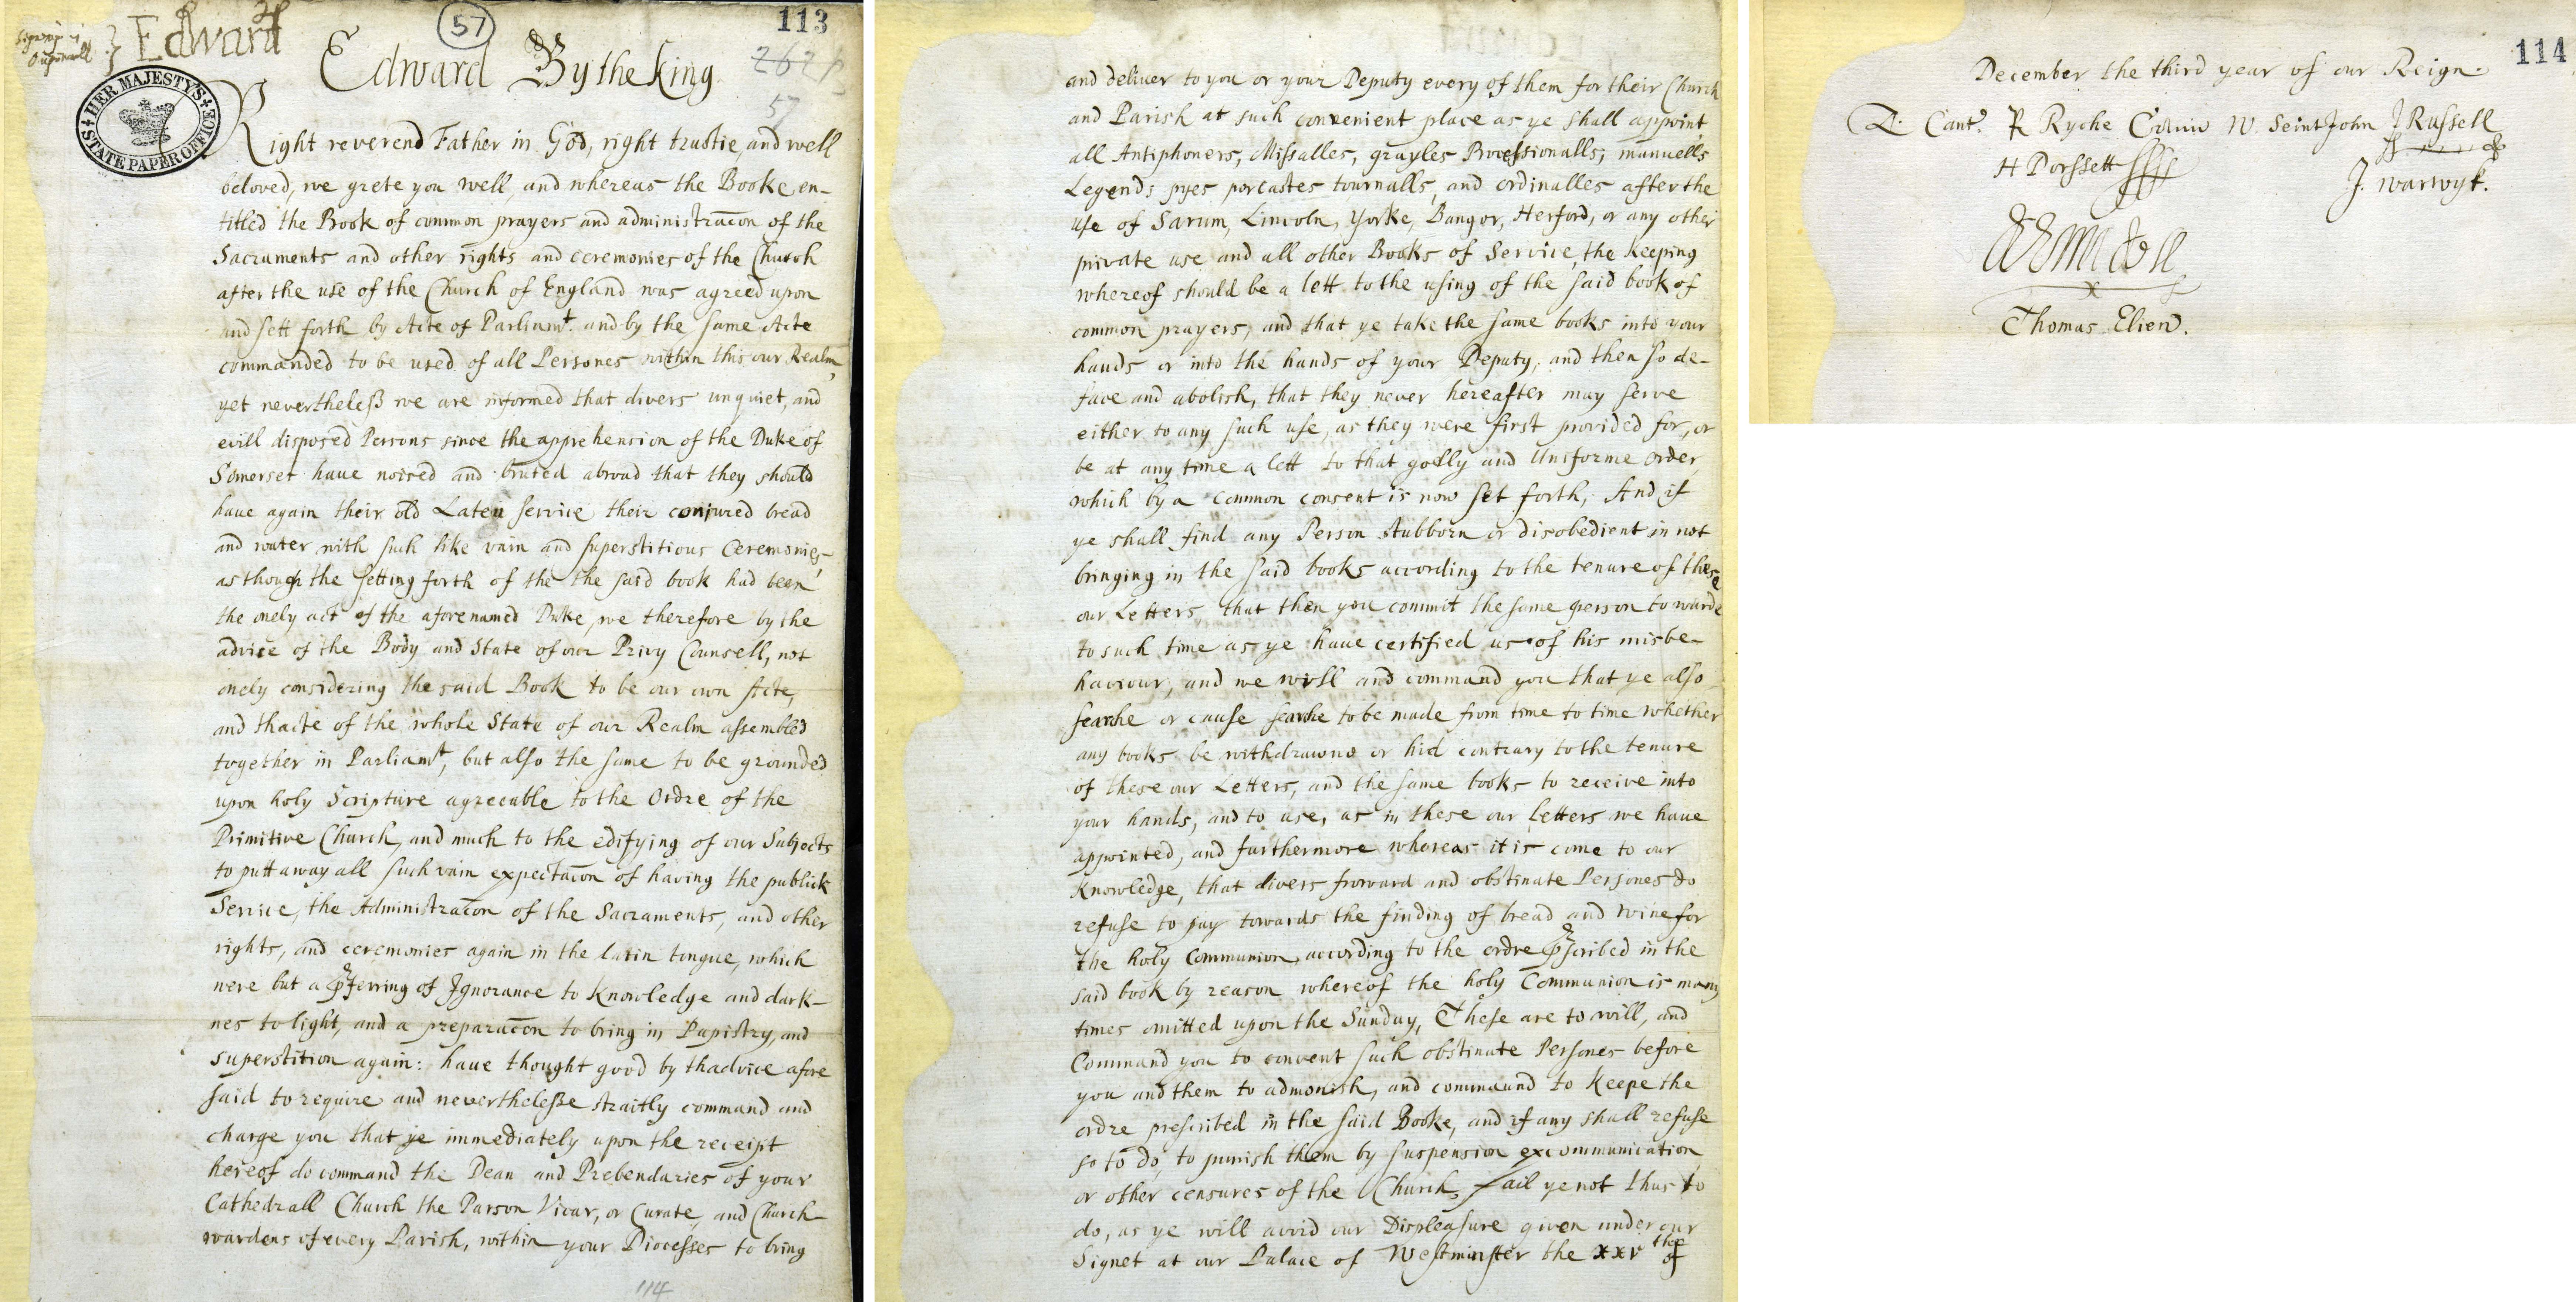 Edward
57
113
Edward By the King
262
57
HER MAJESTY'S STATE PAPER OFFICE
Right reverend Father in God, right trustie, and well
beloved, we grete you well, and whereas the Booke en-
titled the Book of common prayers and administracõn of the
Sacraments and other rights and ceremonies of the Church
after the use of the Church of England was agreed upon
and sett forth by Acte of Parliamt. and by the same Acte
commanded to be used of all Persones within this our Realm,
yet nevertheless we are informed that divers unquiet, and
evill disposed Persons since the apprehension of the Duke of
Somerset haue noised and bruted abroad that they should
haue again their old Laten service their conjured bread
and water with such like vain and superstitious Ceremonies
as though the setting forth of the the said book had been
the onely act of the aforenamed Duke, we therefore by the
advice of the Body and State of our Privy Counsell, not
onely considering the said Book to be our own Acte,
and thacte of the whole State of our Realm assembled
together in Parliamt, but also the same to be grounded
upon holy Scripture agreeable to the Ordre of the
Primitive Church, and much to the edifying of our Subjects
to putt away all such vain expectacõn of having the publick
Service, the Administracõn of the Sacraments, and other
rights, and ceremonies again in the latin tongue, which
were but a pferring of Ignorance to knowledge and dark-
nes to light, and a preparacõn to bring in Papistry, and
superstition again: haue thought good by thadvice afore
said to require and neverthelesse straitly command and
charge you that ye immediately upon the receipt
hereof do command the Dean and Prebendaries of your
Cathedrall Church the Parson Vicar, or Curate, and Church-
wardens of every Parish, within your Diocesses to bring
114
and deliver to you or your Deputy every of them for their Church
and Parish at such convenient place as ye shall appoint
all Antiphoners, Missalles, grayles Processionalls, manuells
Legends pyes porcastes tournalls, and ordinalles after the
use of Sarum, Lincoln, Yorke, Bangor, Herford, or any other
private use and all other Books of Service, the keeping
whereof should be a lett to the using of the said book of
common prayers, and that ye take the same books into your
hands or into the hands of your Deputy, and then so de-
face and abolish, that they never hereafter may serve
either to any such use, as they were first provided for, or
be at any time a lett to that godly and Uniforme order,
which by a common consent is now set forth, And if
ye shall find any Person stubborn or disobedient in not
bringing in the said books according to the tenure of these
our Letters, that then you commit the same person to warde
to such time as ye haue certified us of his misbe-
haviour, and we will and command you that ye also
searche or cause searche to be made from time to time whether
any books be withdrawne or hid contrary to the tenure
of these our Letters, and the same books to receive into
your hands, and to use, as in these our letters we haue
appointed, and furthermore whereas it is come to our
knowledge, that divers froward and obstinate Persones do
refuse to pay towards the finding of bread and wine for
the holy Communion according to the ordre pscribed in the
said book by reason whereof the holy Communion is many
times omitted upon the Sunday, These are to will, and
Command you to convent such obstinate Persones before
you and them to admonish, and commaund to keepe the
ordre prescribed in the said Booke, and if any shall refuse
so to do, to punish them by suspension excommunication
or other censures of the Church, fail ye not thus to
do, as ye will avoid our Displeasure given under our
Signet at our Palace of Westminster the xxv the of
114
December the third year of our Reign.
Cant. R Ryche W. Seint John J Russell
H Dorssett J. Warwyk.
Thomas Elien.